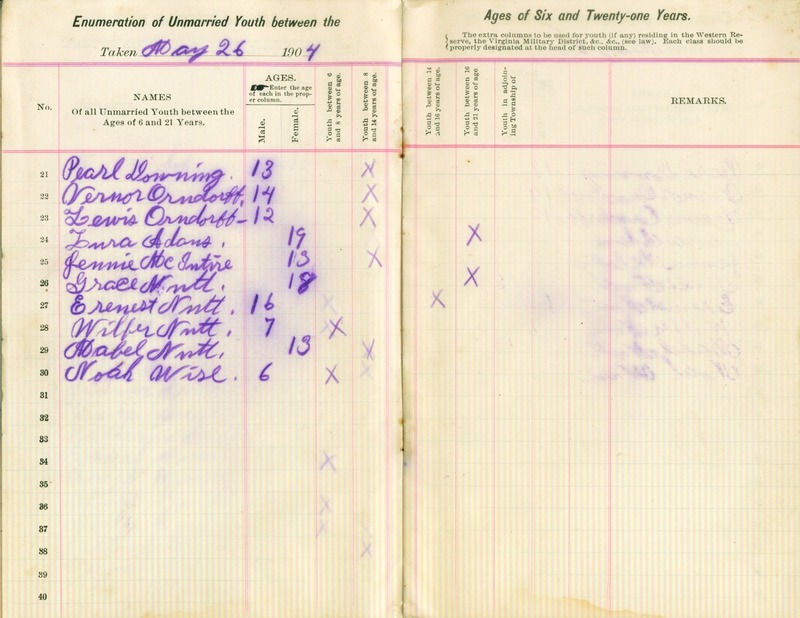 Enumeration of Unmarried Youth between the
Ages of Six and Twenty-one Years.
Taken May 26 1904
The extra columns to be used for youth (if any) residing in the Western Re-
serve, the Virginia Military District, &c., &c., (see law). Each class should be
properly designated at the head of such column.
No.
NAMES
Of all Unmarried Youth between the
Ages of 6 and 21 Years.
AGES.
Enter the age
of each in the prop-
er column.
Male.
Female.
Youth between 6
and 8 years of age.
Youth between 8
and 14 years of age.
Youth between 14
and 16 years of age.
Youth between 16
and 21 years of age.
Youth in adjoin-
ing Township of
REMARKS.
21 Pearl Downing. 13 X
22 Vernor Orndorff. 14 X
23 Lewis Orndorff- 12 X
24 Lura Adans. 19 X
25 Jennie Mc Intire 13 X
26 Grace Nutt. 18 X
27 Erenest Nutt. 16 X
28 Wilber Nutt. 7 X
29 Mabel Nutt. 13 X
30 Noah Wise. 6 X
31
32
33
34
35
36
37
38
39
40